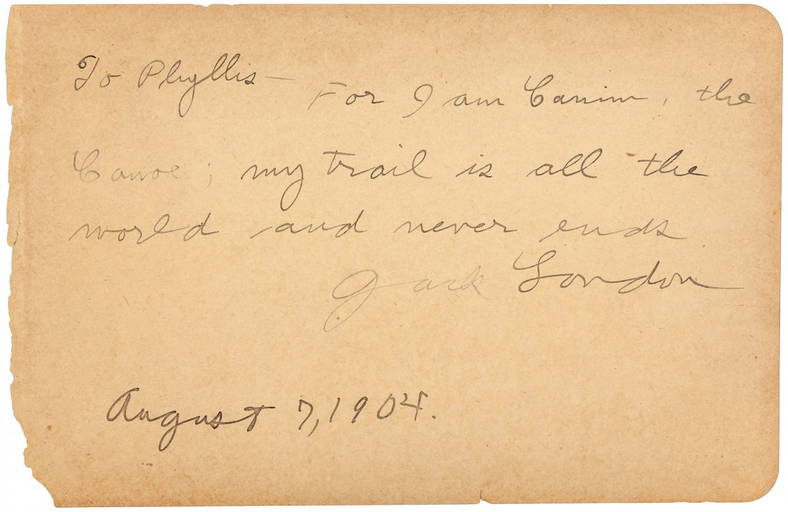 To Phyllis—
For I am Canim, the
Canoe; my trail is all the
world and never ends
Jack London
August 7, 1904.